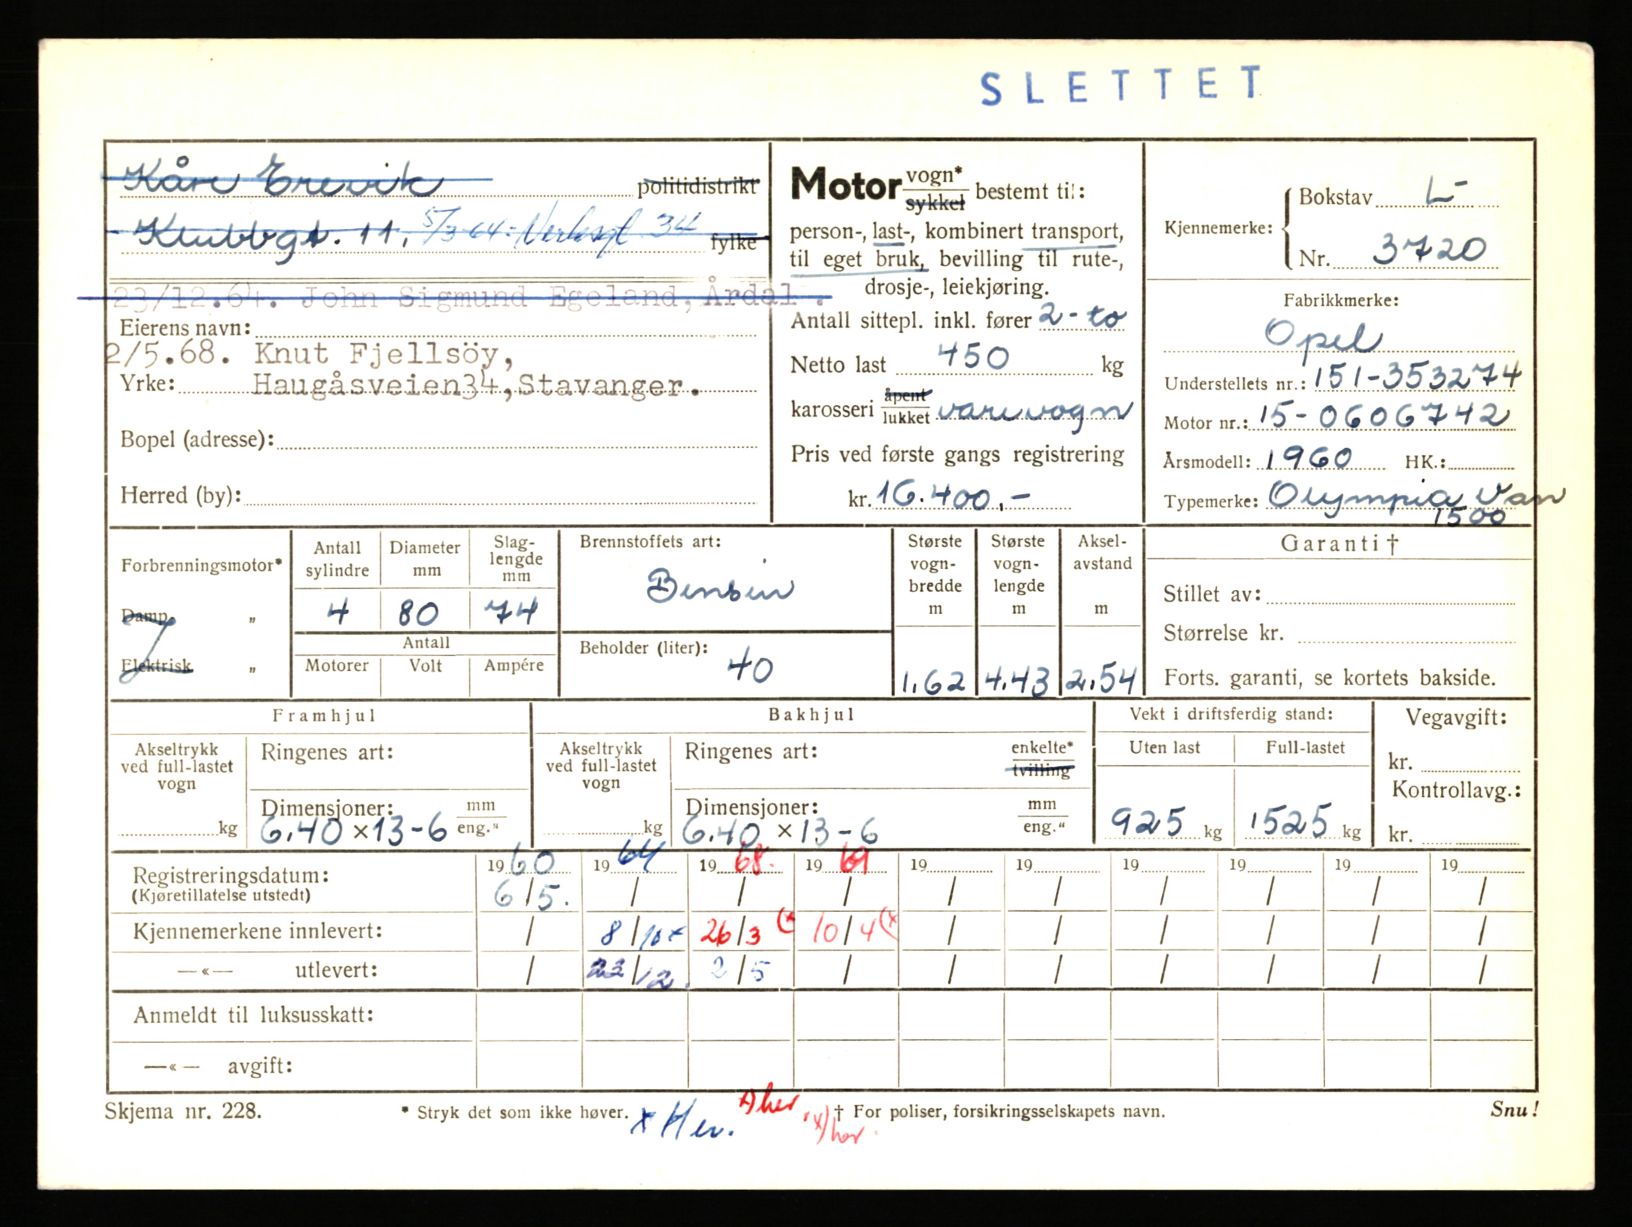 SLETTET
Kåre Erevik politidistrikt
Klubbgt. 11, 5/3-64: Verksgt 34 fylke
23/12.64. John Sigmund Egeland, Årdal.
Eierens navn:
2/5.68. Knut Fjellsöy,
Yrke: Haugåsveien34,Stavanger.
Bopel (adresse):
Herred (by):
Motor vogn* sykkel bestemt til:
person-, last-, kombinert transport,
til eget bruk, bevilling til rute-,
drosje-, leiekjøring.
Antall sittepl. inkl. fører 2-to
Netto last 450 kg
karosseri åpent lukket varevogn
Pris ved første gangs registrering
kr. 16.400,-
Kjennemerke: Bokstav L-
Nr. 3720
Fabrikkmerke:
Opel
Understellets nr.: 151-353274
Motor nr.: 15-0606742
Årsmodell: 1960 HK.:
Typemerke: Olympia Van
1500
Forbrenningsmotor*
Damp „
Elektrisk „
Antall sylindre Diameter mm Slag-lengde mm
4 80 74
Antall
Motorer Volt Ampére
Brennstoffets art:
Bensin
Beholder (liter):
40
Største vogn-bredde m Største vogn-lengde m Aksel-avstand m
1.62 4.43 2.54
Garanti †
Stillet av:
Størrelse kr.
Forts. garanti, se kortets bakside.
Framhjul
Akseltrykk ved full-lastet vogn
kg
Ringenes art:
Dimensjoner: mm
6.40 x 13-6 eng."
Bakhjul
Akseltrykk ved full-lastet vogn
kg
Ringenes art: enkelte* tvilling
Dimensjoner: mm
6.40 x 13-6 eng."
Vekt i driftsferdig stand:
Uten last Full-lastet
925 kg 1525 kg
Vegavgift:
kr.
Kontrollavg.:
kr.
1960 1964 1968. 1969 19 19 19 19 19 19
Registreringsdatum:
(Kjøretillatelse utstedt) 6/5. / / / / / / / / /
Kjennemerkene innlevert: / 8/10x 26/3 (x 10/4 (x / / / / / /
—«— utlevert: / 23/12. 2/5 / / / / / / /
Anmeldt til luksusskatt:
—«— avgift:
Skjema nr. 228. * Stryk det som ikke høver. x Her. x) her, x) her. † For poliser, forsikringsselskapets navn. Snu!